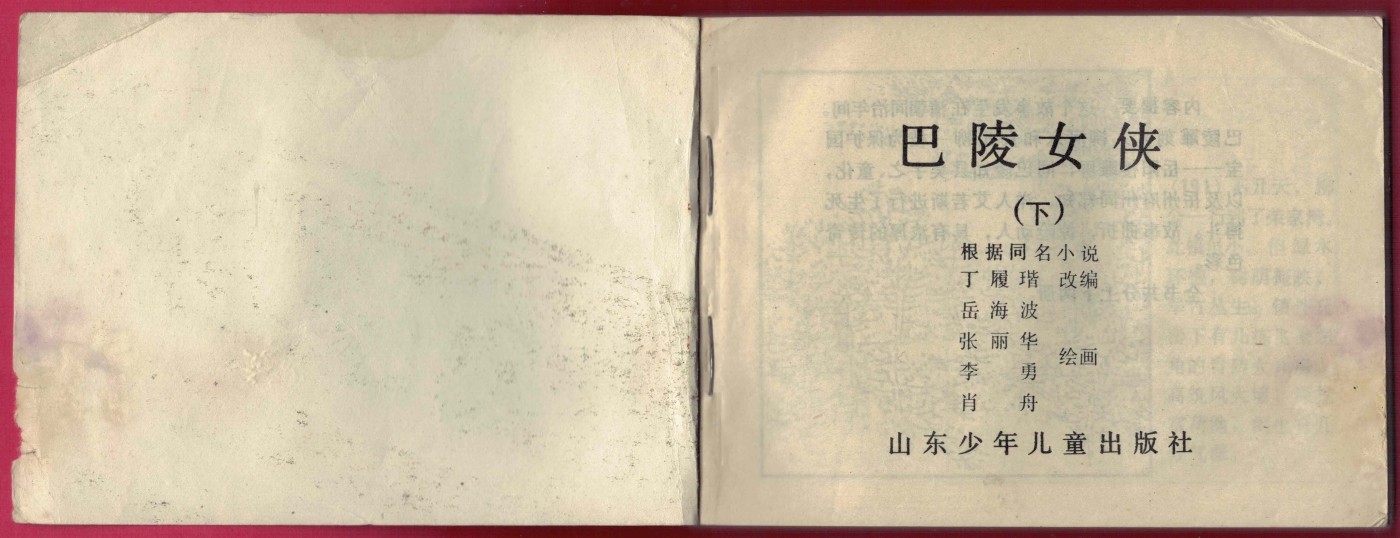 巴陵女侠
(下)
根据同名小说
丁履瑎 改编
岳海波
张丽华
李勇
绘画
肖舟
山东少年儿童出版社